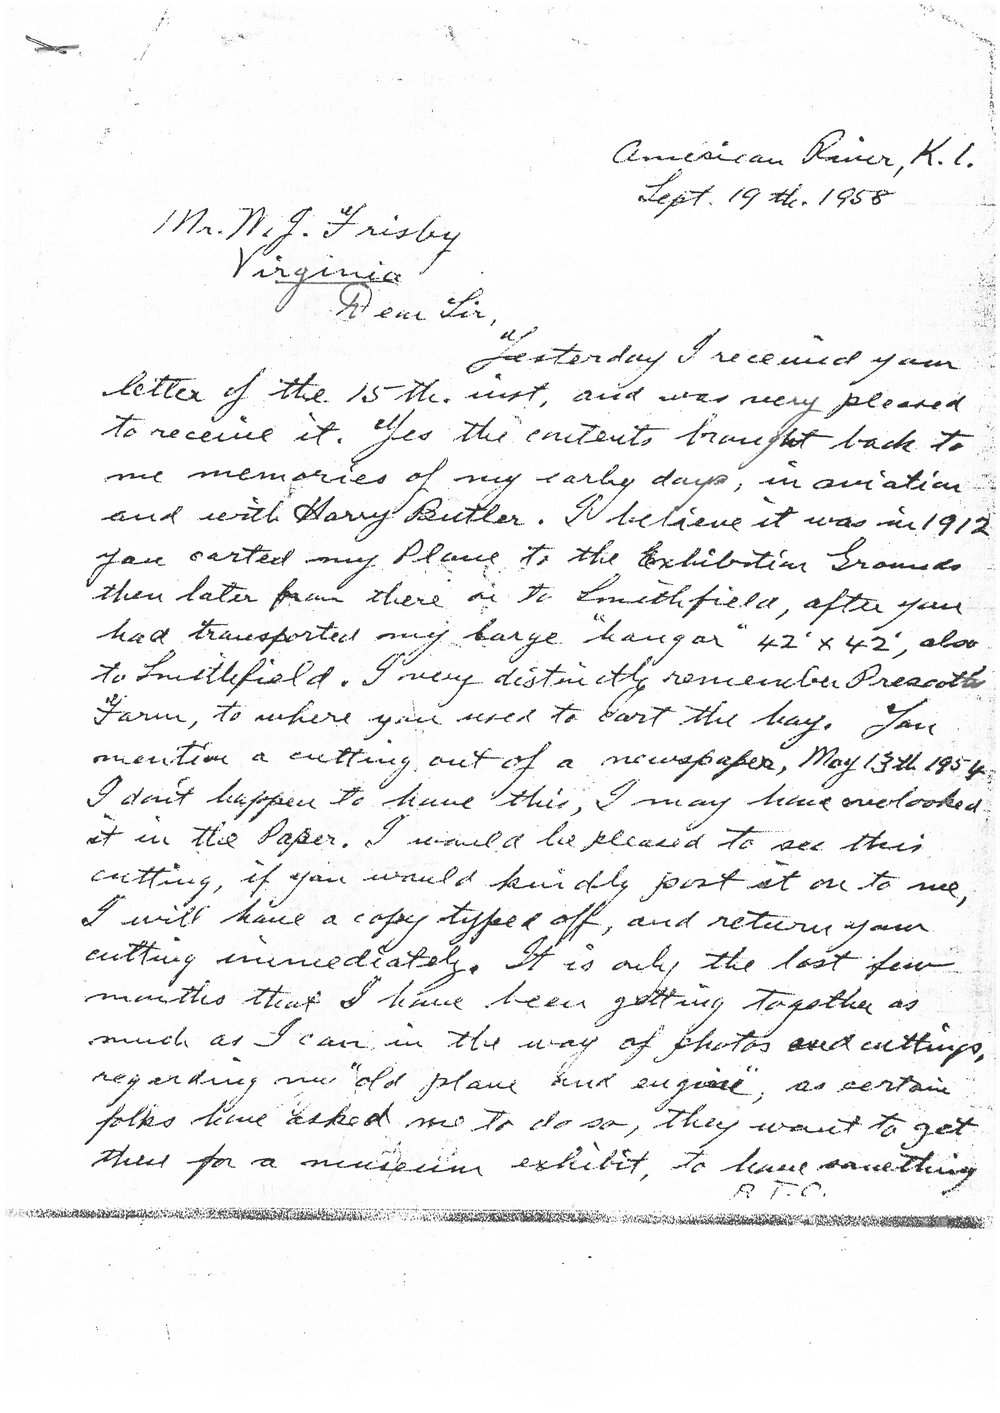 American River, K.I.
Sept. 19th. 1958
Mr. W. J. Frisby
Virginia
Dear Sir,
Yesterday I received your
letter of the 15th. inst, and was very pleased
to receive it. Yes the contents brought back to
me memories of my early days, in aviation
and with Harry Butler. I believe it was in 1912
you carted my Plane to the Exhibition Grounds
then later from there on to Smithfield, after you
had transported my large "hangar" 42' x 42', also
to Smithfield. I very distinctly remember Prescotts
Farm, to where you used to cart the hay. You
mention a cutting out of a newspaper, May 13th 1954
I don't happen to have this, I may have overlooked
it in the Paper. I would be pleased to see this
cutting, if you would kindly post it on to me,
I will have a copy typed off, and return your
cutting immediately. It is only the last few
months that I have been getting together as
much as I can in the way of photos and cuttings,
regarding my "old plane and engine", as certain
folks have asked me to do so, they want to get
them for a museum exhibit, to have something
P.T.O.